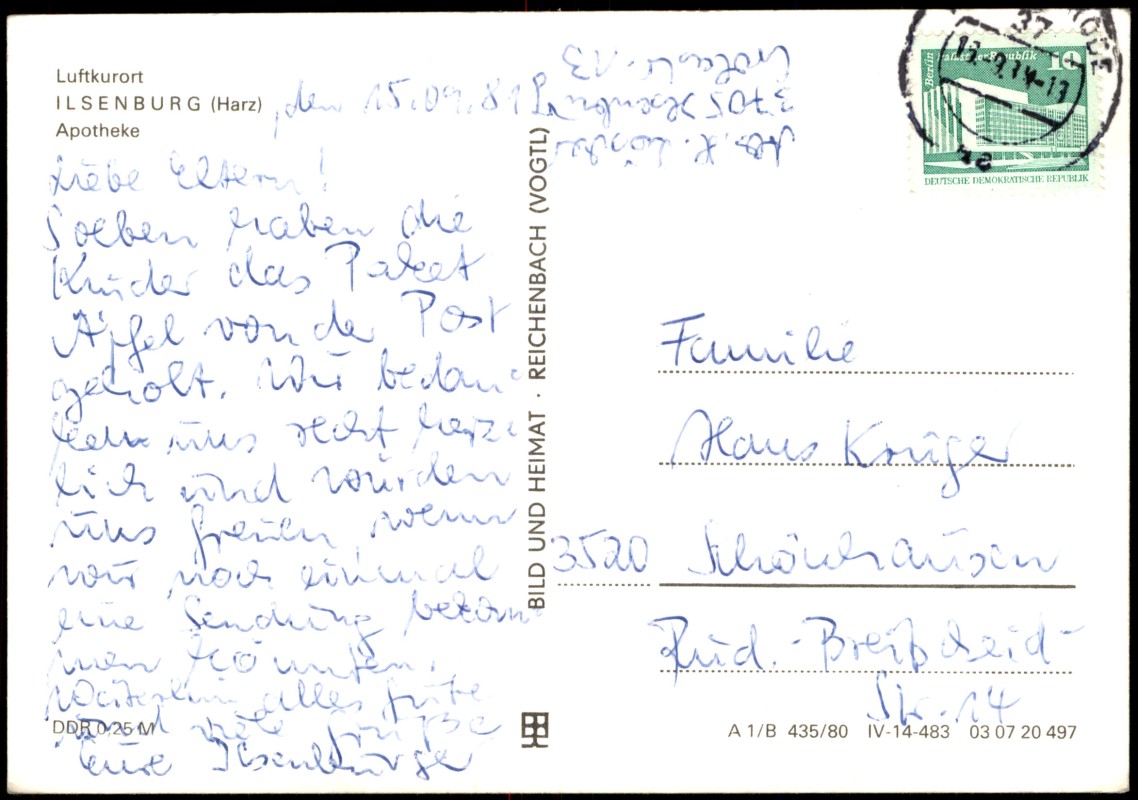 Luftkurort
ILSENBURG (Harz)
Apotheke
, den 15.09.81
Liebe Eltern!
Soeben haben die
Kinder das Paket
Äpfel von der Post
geholt. Wir bedan
ken uns recht herz
lich und würden
uns freuen wenn
wir noch einmal
eine Sendung bekom
men könnten.
Weiterhin alles gute
und viele Grüße
Eure Ilsenburger
DDR 0,25 M
BILD UND HEIMAT · REICHENBACH (VOGTL)
Abs. H.
3705 Ilsenburg
13
Berlin Palast der Republik 10
DEUTSCHE DEMOKRATISCHE REPUBLIK
37
-13
Familie
Hans Krüger
3520 Schönhausen
Rud.-Breitscheid-
Str. 14
A 1/B 435/80 IV-14-483 03 07 20 497